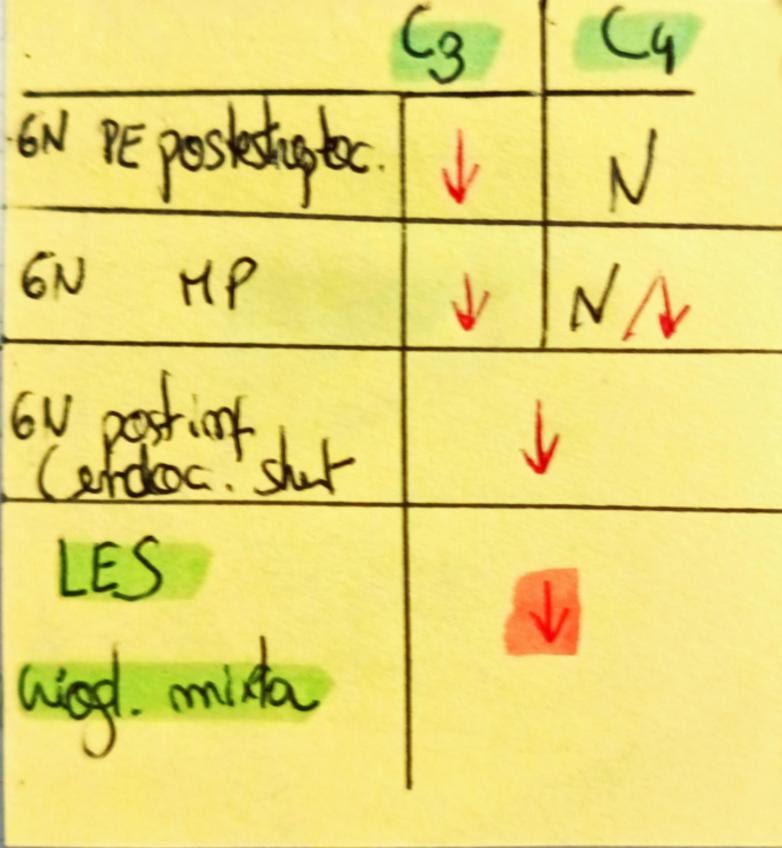 C3 C4
GN PE postestreptoc. ↓ N
GN MP ↓ N/↓
GN postinf ↓
(endoc. shunt
LES ↓
criogl. mixta